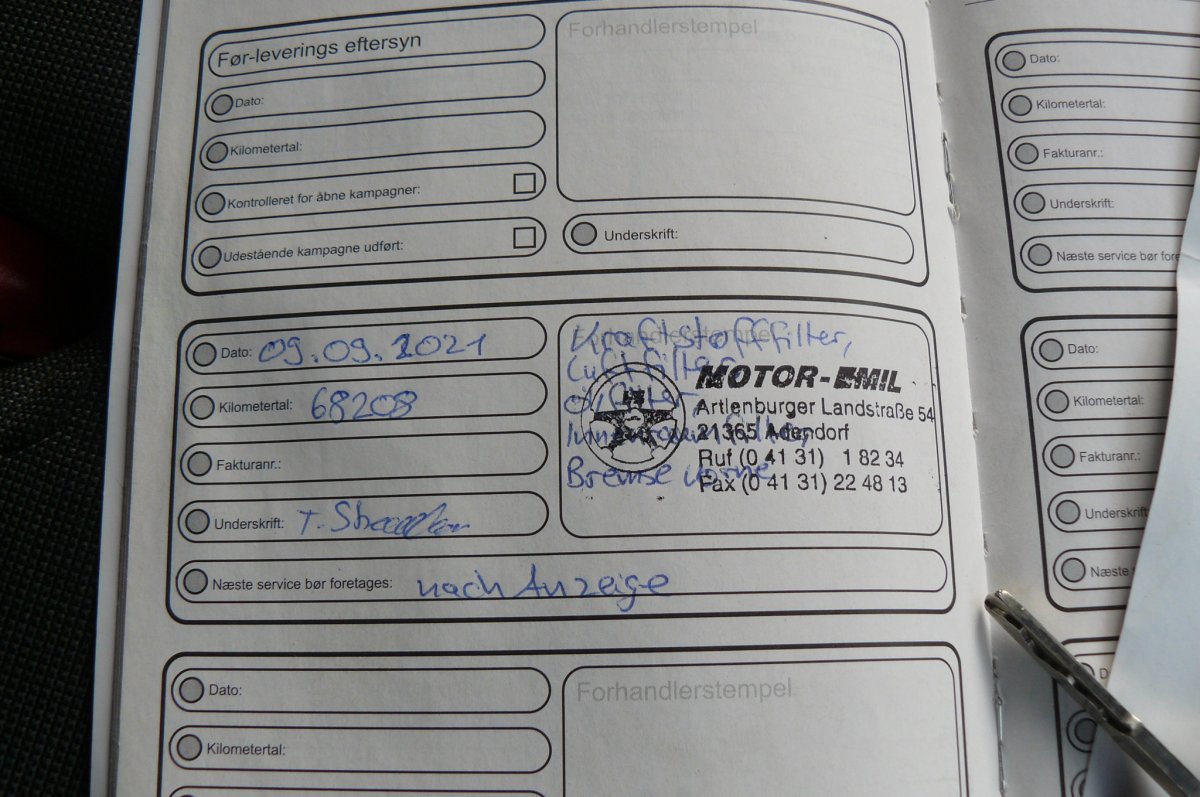 Før-leverings eftersyn
Forhandlerstempel
Dato:
Kilometertal:
Kontrolleret for åbne kampagner:
Udestående kampagne udført:
Underskrift:
Dato: 09.09.2021
Kilometertal: 68208
Fakturanr.:
Underskrift: T.
Næste service bør foretages: nach Anzeige
Forhandlerstempel
Kraftstofffilter,
Luftfilter
Ölfilter,
Innenraumfilter,
Bremse vorne
MOTOR-EMIL
Artlenburger Landstraße 54
21365 Adendorf
Ruf (0 41 31) 1 82 34
Fax (0 41 31) 22 48 13
Dato:
Kilometertal:
Forhandlerstempel
Dato:
Kilometertal:
Fakturanr.:
Underskrift:
Næste service bør
Dato:
Kilometertal:
Fakturanr.:
Underskrift
Næste